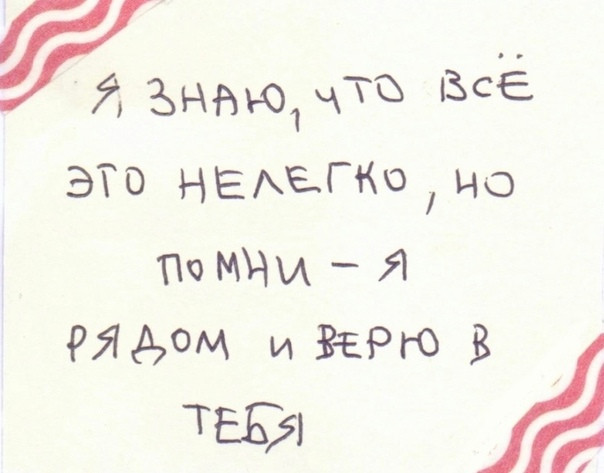 Я ЗНАЮ, ЧТО ВСЁ
ЭТО НЕЛЕГКО, НО
ПОМНИ – Я
РЯДОМ И ВЕРЮ В
ТЕБЯ